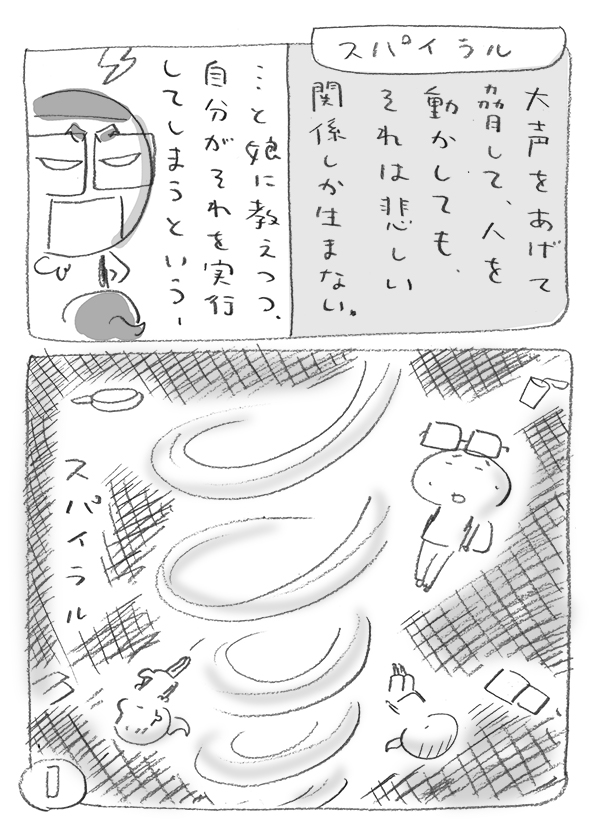 スパイラル
大声をあげて
脅して、人を
動かしても、
それは悲しい
関係しか生まない。
…と娘に教えつつ、
自分がそれを実行
してしまうという、
スパイラル